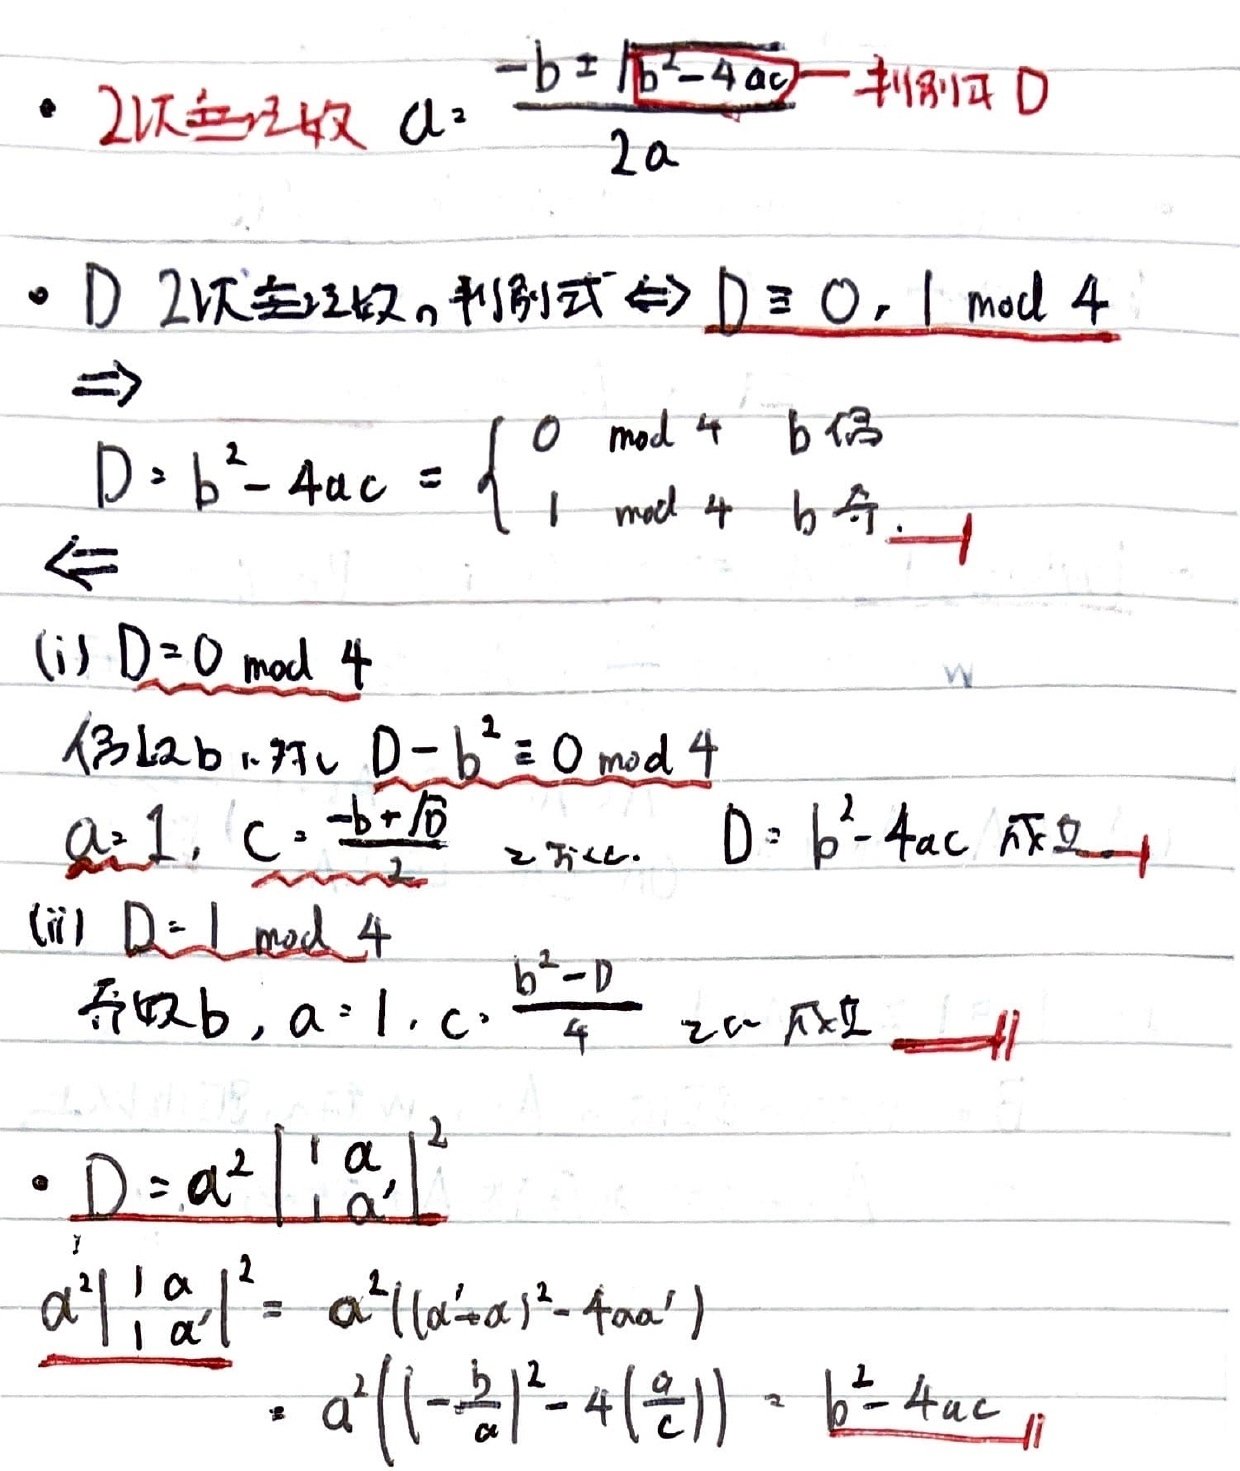 ・2次無理数 α = (-b ± √(b² - 4ac)) / 2a — 判別式 D
・D 2次無理数の判別式 ⇔ D ≡ 0, 1 mod 4
⇒
D = b² - 4ac = { 0 mod 4 b偶
1 mod 4 b奇.
⇐
(i) D = 0 mod 4
偶数bに対し D - b² ≡ 0 mod 4
a = 1, c = (-b + √D) / 2 とおくと. D = b² - 4ac 成立.
(ii) D = 1 mod 4
奇数b, a = 1, c = (b² - D) / 4 成立
・D = a² | 1 α ; 1 α' |²
a² | 1 α ; 1 α' |² = a²((α'+α)² - 4αα')
= a²((-b/a)² - 4(a/c)) = b² - 4ac